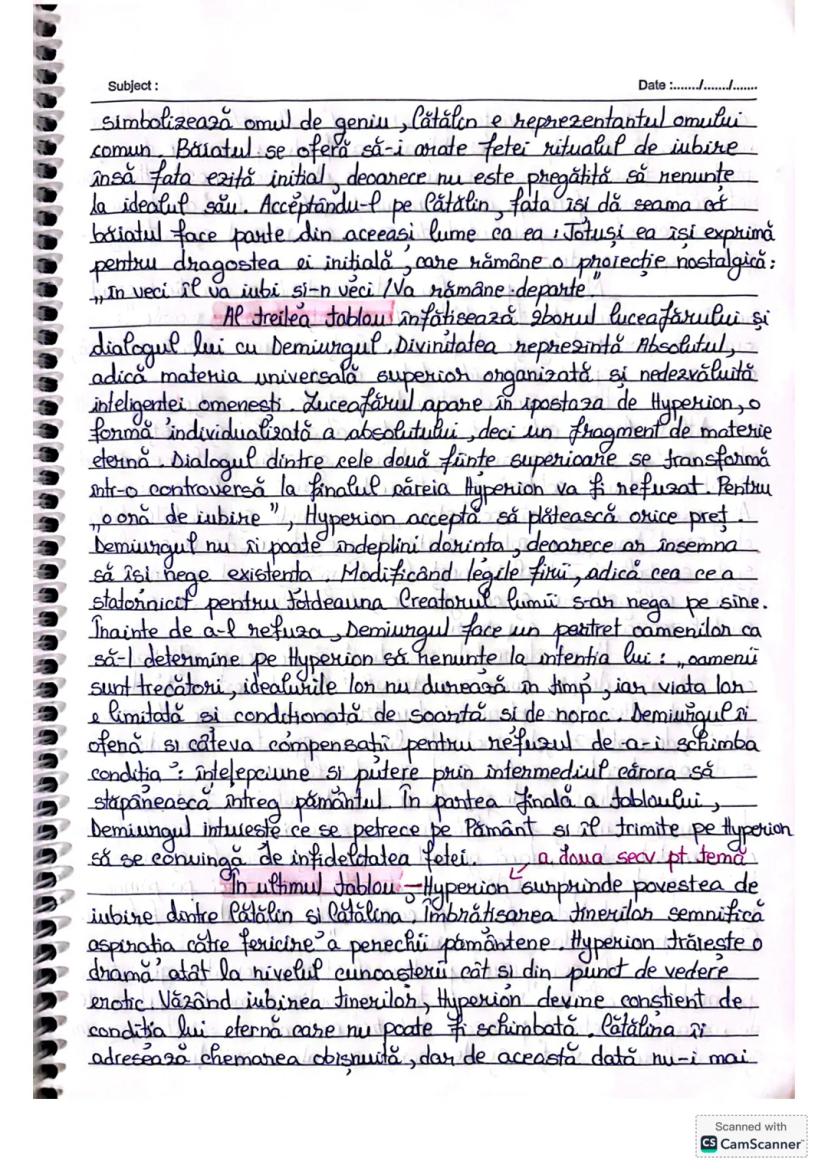 Subject :
Date :......./......./.......
simbolizează omul de geniu, Cătălin e reprezentantul omului
comun. Băiatul se oferă să-i arate fetei ritualul de iubire
însă fata ezită inițial, deoarece nu este pregătită să renunțe
la idealul său. Acceptându-l pe Cătălin, fata își dă seama că
băiatul face parte din aceeași lume ca ea. Totuși ea își exprimă
pentru dragostea ei inițială, care rămâne o proiecție nostalgică:
„În veci îl va iubi și-n veci / Va rămâne departe."
Al treilea tablou înfățisează zborul luceafărului și
dialogul lui cu Demiurgul. Divinitatea reprezintă Absolutul,
adică materia universală superior organizată și nedezvăluită
inteligenței omenești. Luceafărul apare în ipostaza de Hyperion, o
formă individualizată a absolutului, deci un fragment de materie
eternă. Dialogul dintre cele două ființe superioare se transformă
într-o controversă la finalul căreia Hyperion va fi refuzat. Pentru
„o oră de iubire", Hyperion acceptă să plătească orice preț.
Demiurgul nu îi poate îndeplini dorința, deoarece ar însemna
să își nege existența. Modificând legile firii, adică cea ce a
statornicit pentru totdeauna Creatorul lumii s-ar nega pe sine.
Înainte de a-l refuza, Demiurgul face un portret oamenilor ca
să-l determine pe Hyperion să renunțe la intenția lui: „oamenii
sunt trecători, idealurile lor nu durează în timp, iar viața lor
e limitată și condiționată de soartă și de noroc. Demiurgul îi
oferă și câteva compensații pentru refuzul de-a-i schimba
condiția": înțelepciune și putere prin intermediul cărora să
stăpânească întreg pământul. În partea finală a tabloului,
Demiurgul intuiește ce se petrece pe Pământ și îl trimite pe Hyperion
să se convingă de infidelitatea fetei.
a doua secv pt. temă
În ultimul tablou – Hyperion surprinde povestea de
iubire dintre Cătălin și Cătălina, îmbrățișarea tinerilor semnifică
aspirația către fericire a perechii pământene. Hyperion trăiește o
dramă atât la nivelul cunoașterii cât și din punct de vedere
erotic. Văzând iubirea tinerilor, Hyperion devine conștient de
condiția lui eternă care nu poate fi schimbată. Cătălina îi
adresează chemarea obișnuită, dar de această dată nu-i mai
Scanned with
CS CamScanner